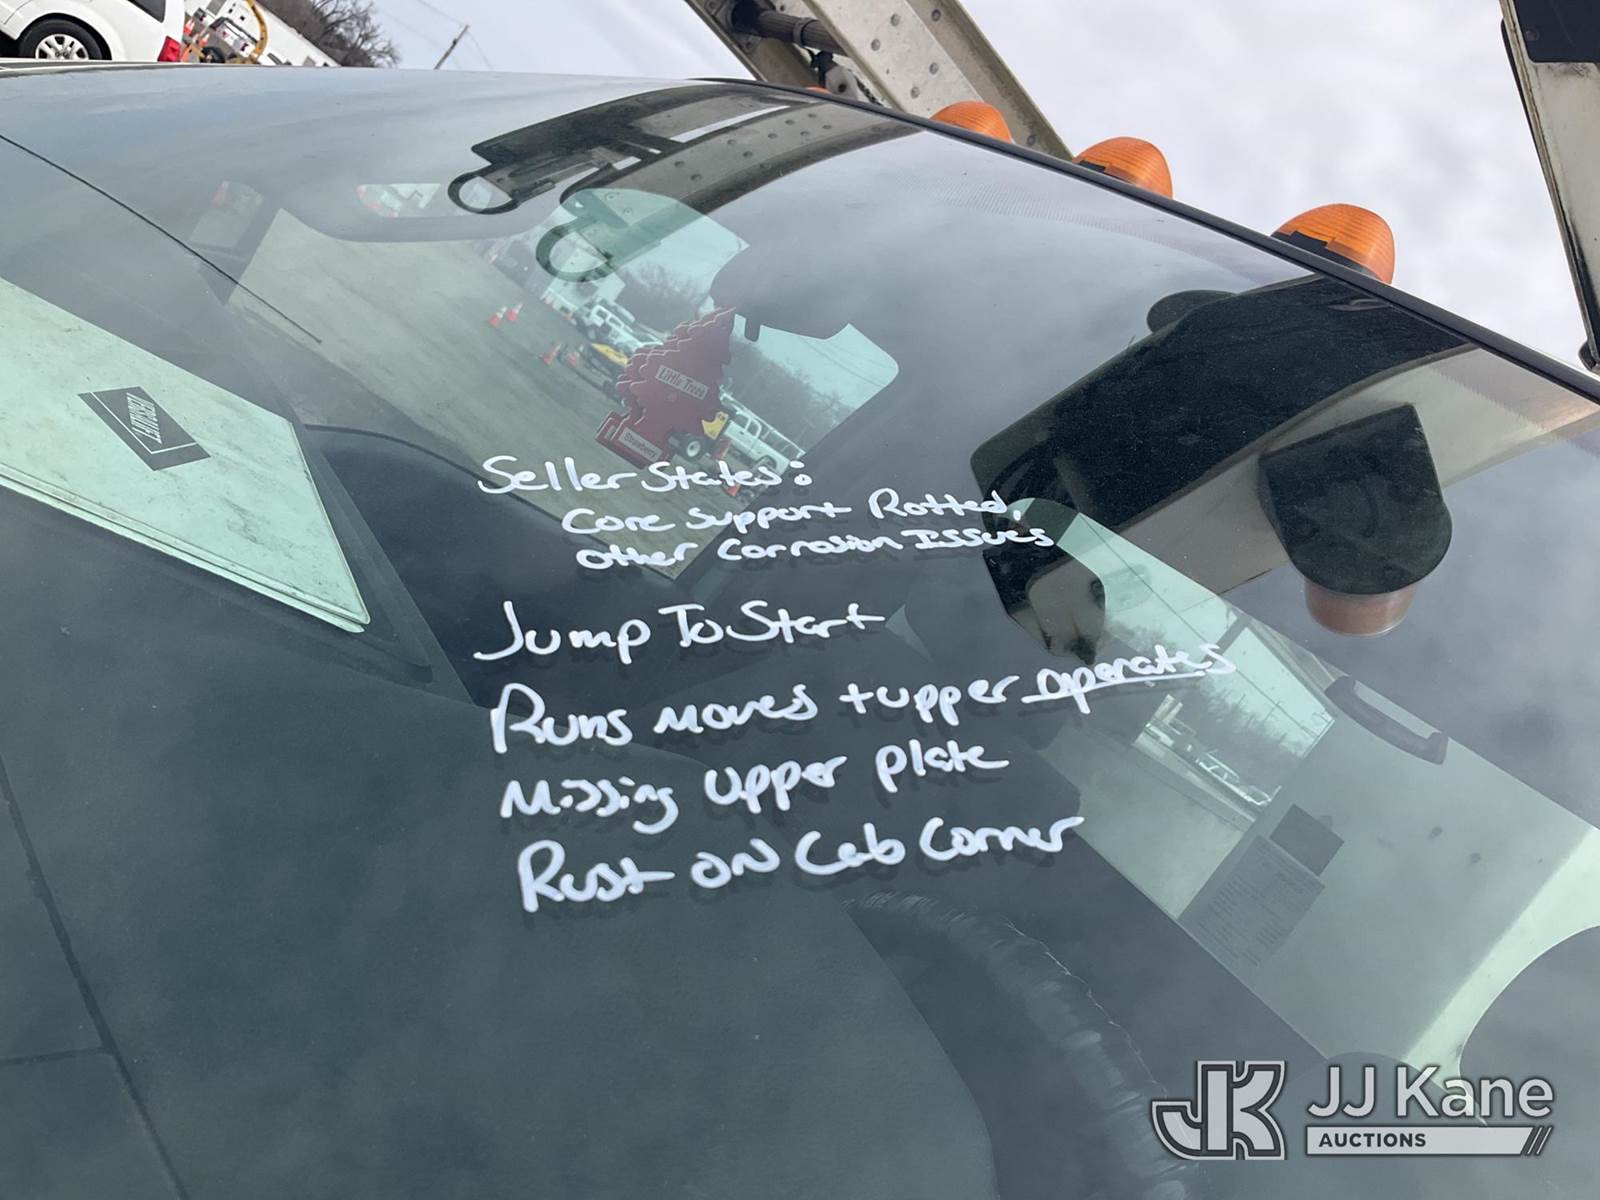 VERSALIFT
Little Trees
Strawberry
Seller States:
Core Support Rotted,
other Corrosion Issues
Jump To Start
Runs moves + upper operates
Missing upper plate
Rust on Cab Corner
JK JJ Kane
AUCTIONS